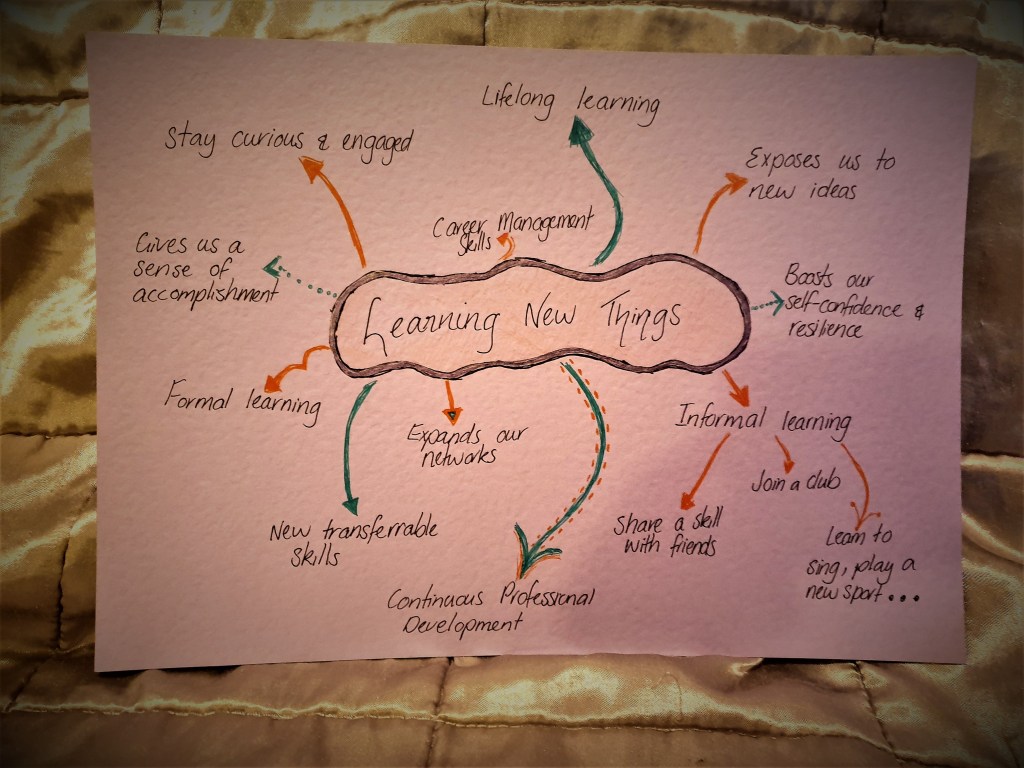 Lifelong learning
Stay curious & engaged
Exposes us to
new ideas
Career Management
Skills
Gives us a
sense of
accomplishment
Boosts our
self-confidence &
resilience
Learning New Things
Formal learning
Expands our
networks
Informal learning
Join a club
New transferrable
Skills
Share a skill
with friends
Learn to
sing, play a
new sport...
Continuous Professional
Development